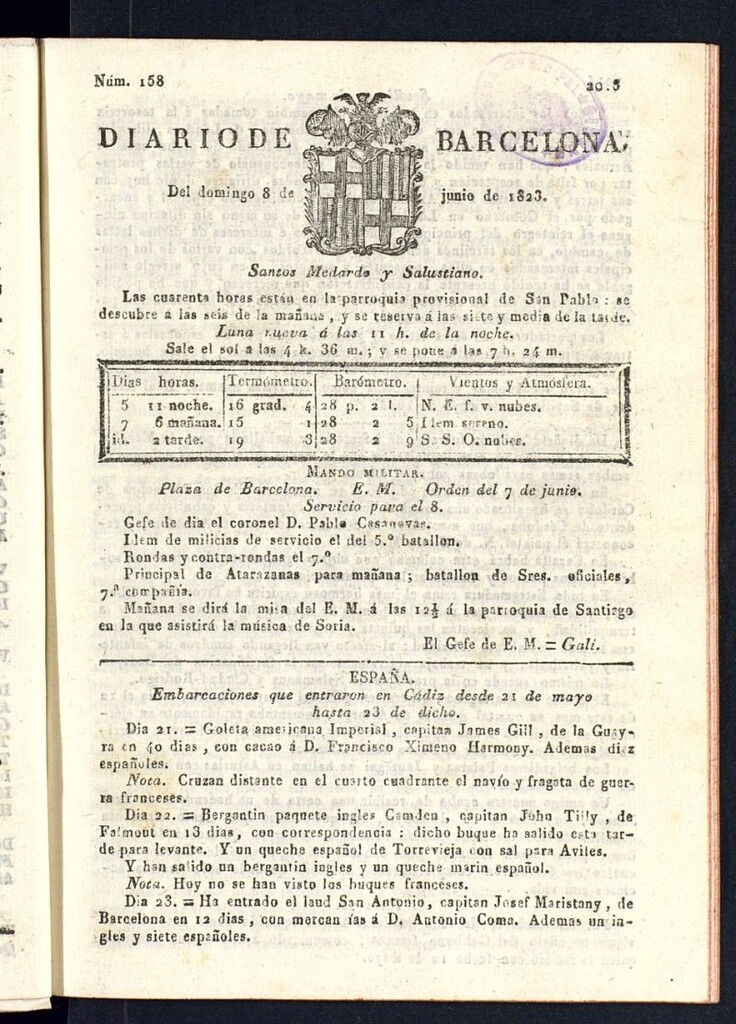 Núm. 158
DIARIO DE BARCELONA,
Del domingo 8 de junio de 1823.
Santos Medardo y Salustiano.
Las cuarenta horas están en la parroquia provisional de San Pablo : se
descubre á las seis de la mañana , y se reserva á las siete y media de la tarde.
Luna nueva á las 11 h. de la noche.
Sale el sol á las 4 h. 36 m. ; y se pone á las 7 h. 24 m.
Dias horas. Termómetro. Barómetro. Vientos y Atmósfera.
5 11 noche. 16 grad. 4 28 p. 2 l. N. E. f. v. nubes.
7 6 mañana. 15 1 28 2 5 Idem sereno.
id. 2 tarde. 19 3 28 2 9 S. S. O. nubes.
MANDO MILITAR.
Plaza de Barcelona. E. M. Orden del 7 de junio.
Servicio para el 8.
Gefe de dia el coronel D. Pablo Casanovas.
Idem de milicias de servicio el del 5.º batallon.
Rondas y contra-rondas el 7.º
Principal de Atarazanas para mañana ; batallon de Sres. oficiales,
7.ª compañía.
Mañana se dirá la misa del E. M. á las 12½ á la parroquia de Santiago
en la que asistirá la música de Soria.
El Gefe de E. M. = Galí.
ESPAÑA.
Embarcaciones que entraron en Cádiz desde 21 de mayo
hasta 23 de dicho.
Dia 21. = Goleta americana Imperial , capitan James Gill , de la Guay-
ra en 40 dias , con cacao á D. Francisco Ximeno Harmony. Ademas diez
españoles.
Nota. Cruzan distante en el cuarto cuadrante el navío y fragata de guer-
ra franceses.
Dia 22. = Bergantin paquete ingles Camden , capitan John Tilly , de
Falmout en 13 dias, con correspondencia : dicho buque ha salido esta tar-
de para levante. Y un queche español de Torrevieja con sal para Aviles.
Y han salido un bergantin ingles y un queche marin español.
Nota. Hoy no se han visto los buques franceses.
Dia 23. = Ha entrado el laud San Antonio, capitan Josef Maristany , de
Barcelona en 12 dias , con mercancías á D. Antonio Coma. Ademas un in-
gles y siete españoles.